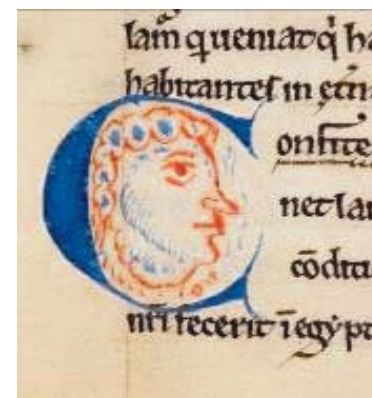 lam̄ q ueniat q̇ ha
habitantes in
Confite
net lau
cōditi
nr̄i fecerit ī egypt